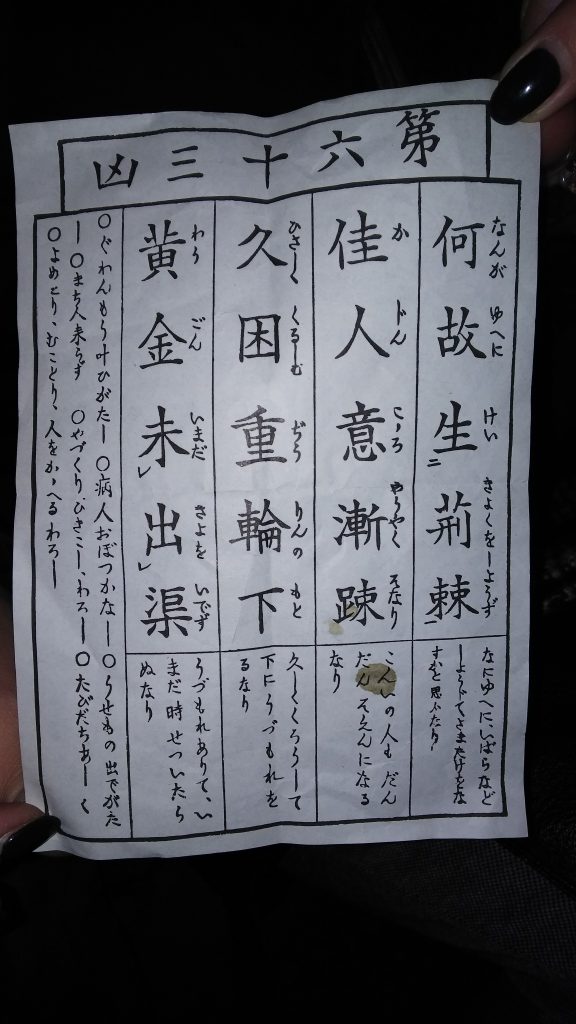 第六十三凶
何故生荊棘
なんが ゆへに けい きよくをしようず
なにゆへに、いばらなど
しようじてさまたげをな
すかと思ふなり
佳人意漸踈
か じん こゝろ やうやく そなり
こんいの人もだん
だんそえんになる
なり
久困重輪下
ひさしく くるしむ ぢう りんの もと
久しくくろうして
下にうづもれを
るなり
黄金未出渠
わう ごん いまだ きよを いでず
うづもれありて、い
まだ時せついたら
ぬなり
○ぐわんもう叶ひがたし ○病人おぼつかなし ○うせもの出でがた
し ○まち人来らず ○やづくり、ひきこし、わろし ○たびだちあしく
○よめとり、むことり、人をかゝへるわろし